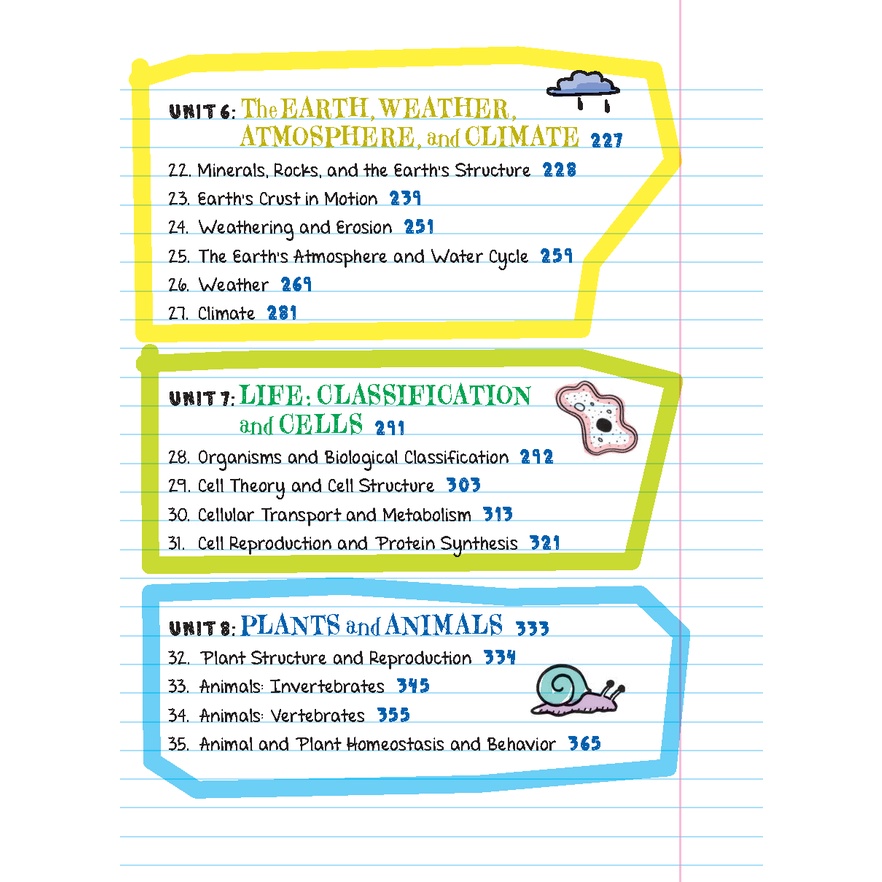 UNIT 6: The EARTH, WEATHER,
ATMOSPHERE, and CLIMATE 227
22. Minerals, Rocks, and the Earth's Structure 228
23. Earth's Crust in Motion 239
24. Weathering and Erosion 251
25. The Earth's Atmosphere and Water Cycle 259
26. Weather 269
27. Climate 281
UNIT 7: LIFE: CLASSIFICATION
and CELLS 291
28. Organisms and Biological Classification 292
29. Cell Theory and Cell Structure 303
30. Cellular Transport and Metabolism 313
31. Cell Reproduction and Protein Synthesis 321
UNIT 8: PLANTS and ANIMALS 333
32. Plant Structure and Reproduction 334
33. Animals: Invertebrates 345
34. Animals: Vertebrates 355
35. Animal and Plant Homeostasis and Behavior 365